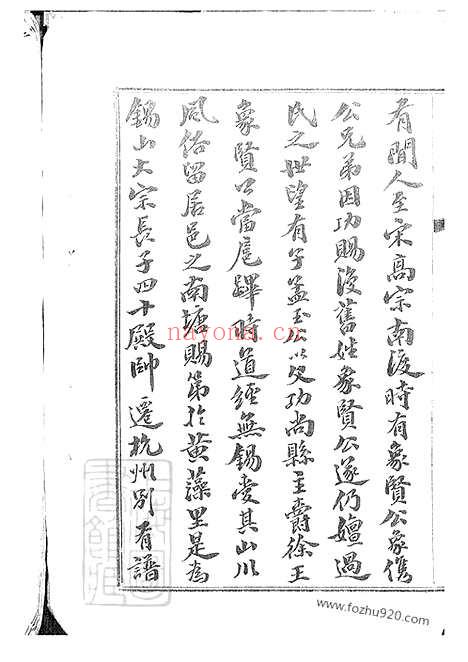 有聞人至宋高宗南渡時有象賢公象儁
公兄弟因功賜復舊姓象賢公遂仍嬗過
氏之世望有子孟玉公以父功尚縣主爵徐王
象賢公當扈蹕時道經無錫愛其山川
風俗留居邑之南塘賜第於黃藻里是為
錫山大宗長子四十殿帥遷杭州別有譜
nayona.cn
www.fozhu920.com